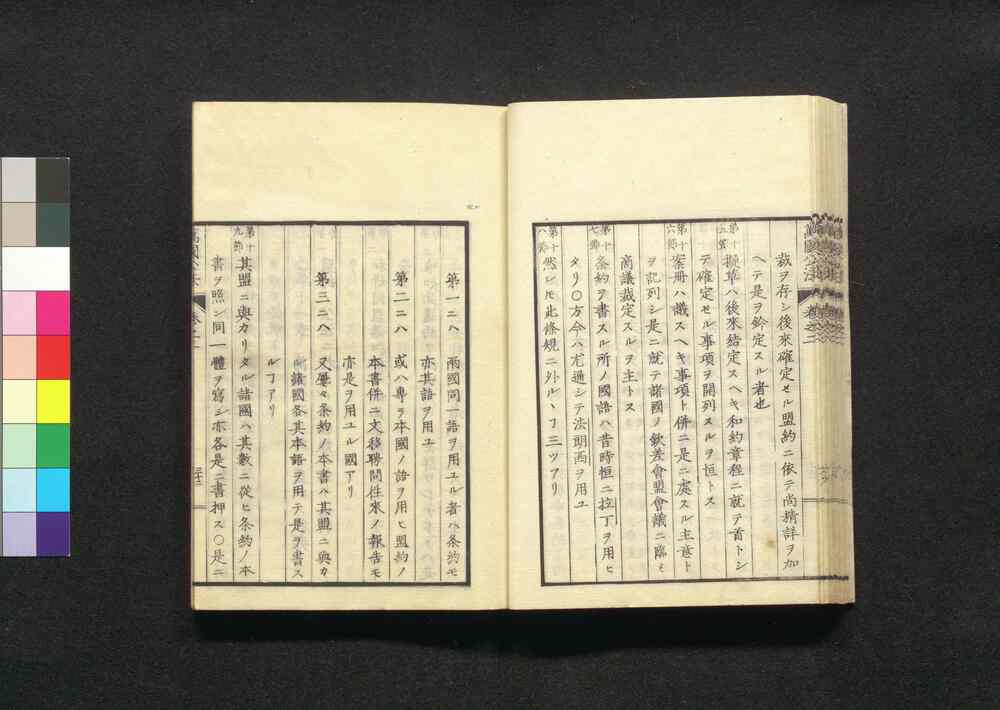 裁ヲ存シ後來確定セル盟約ニ依テ尚精詳ヲ加
ヘテ是ヲ鈐定スル者也
第十五節 擬草ハ後來結定スヘキ和約章程ニ就テ首トシ
テ確定セル事項ヲ開列スルヲ恒トス
第十六節 案册ハ議スヘキ事項ト併ニ是ニ處スル主意ト
ヲ記列シ是ニ就テ諸國ノ欽差會盟會議ニ臨ミ
商議裁定スルヲ主トス
第十七節 条約ヲ書スル所ノ國語ハ昔時恒ニ拉丁ヲ用ヒ
タリ〇方今ハ尤通シテ法朗西ヲ用ユ
第十八節 然レモ此條規ニ外ルヽヿ三ツアリ
第一ニハ 兩國同一語ヲ用ユル者ハ条約モ
亦其語ヲ用ユ
第二ニハ 或ハ專ラ本國ノ語ヲ用ヒ盟約ノ
本書併ニ文移聘問往來ノ報告モ
亦是ヲ用ユル國アリ
第三ニハ 又屢々条約ノ本書ハ其盟ニ與カ
ル諸國各其本語ヲ用テ是ヲ書ス
ルヿアリ
第十九節 其盟ニ與カリタル諸國ハ其數ニ從ヒ条約ノ本
書ヲ照シ同一體ヲ寫シ亦各是ニ書押ス〇是ニ
萬國公法 卷之二
三十二